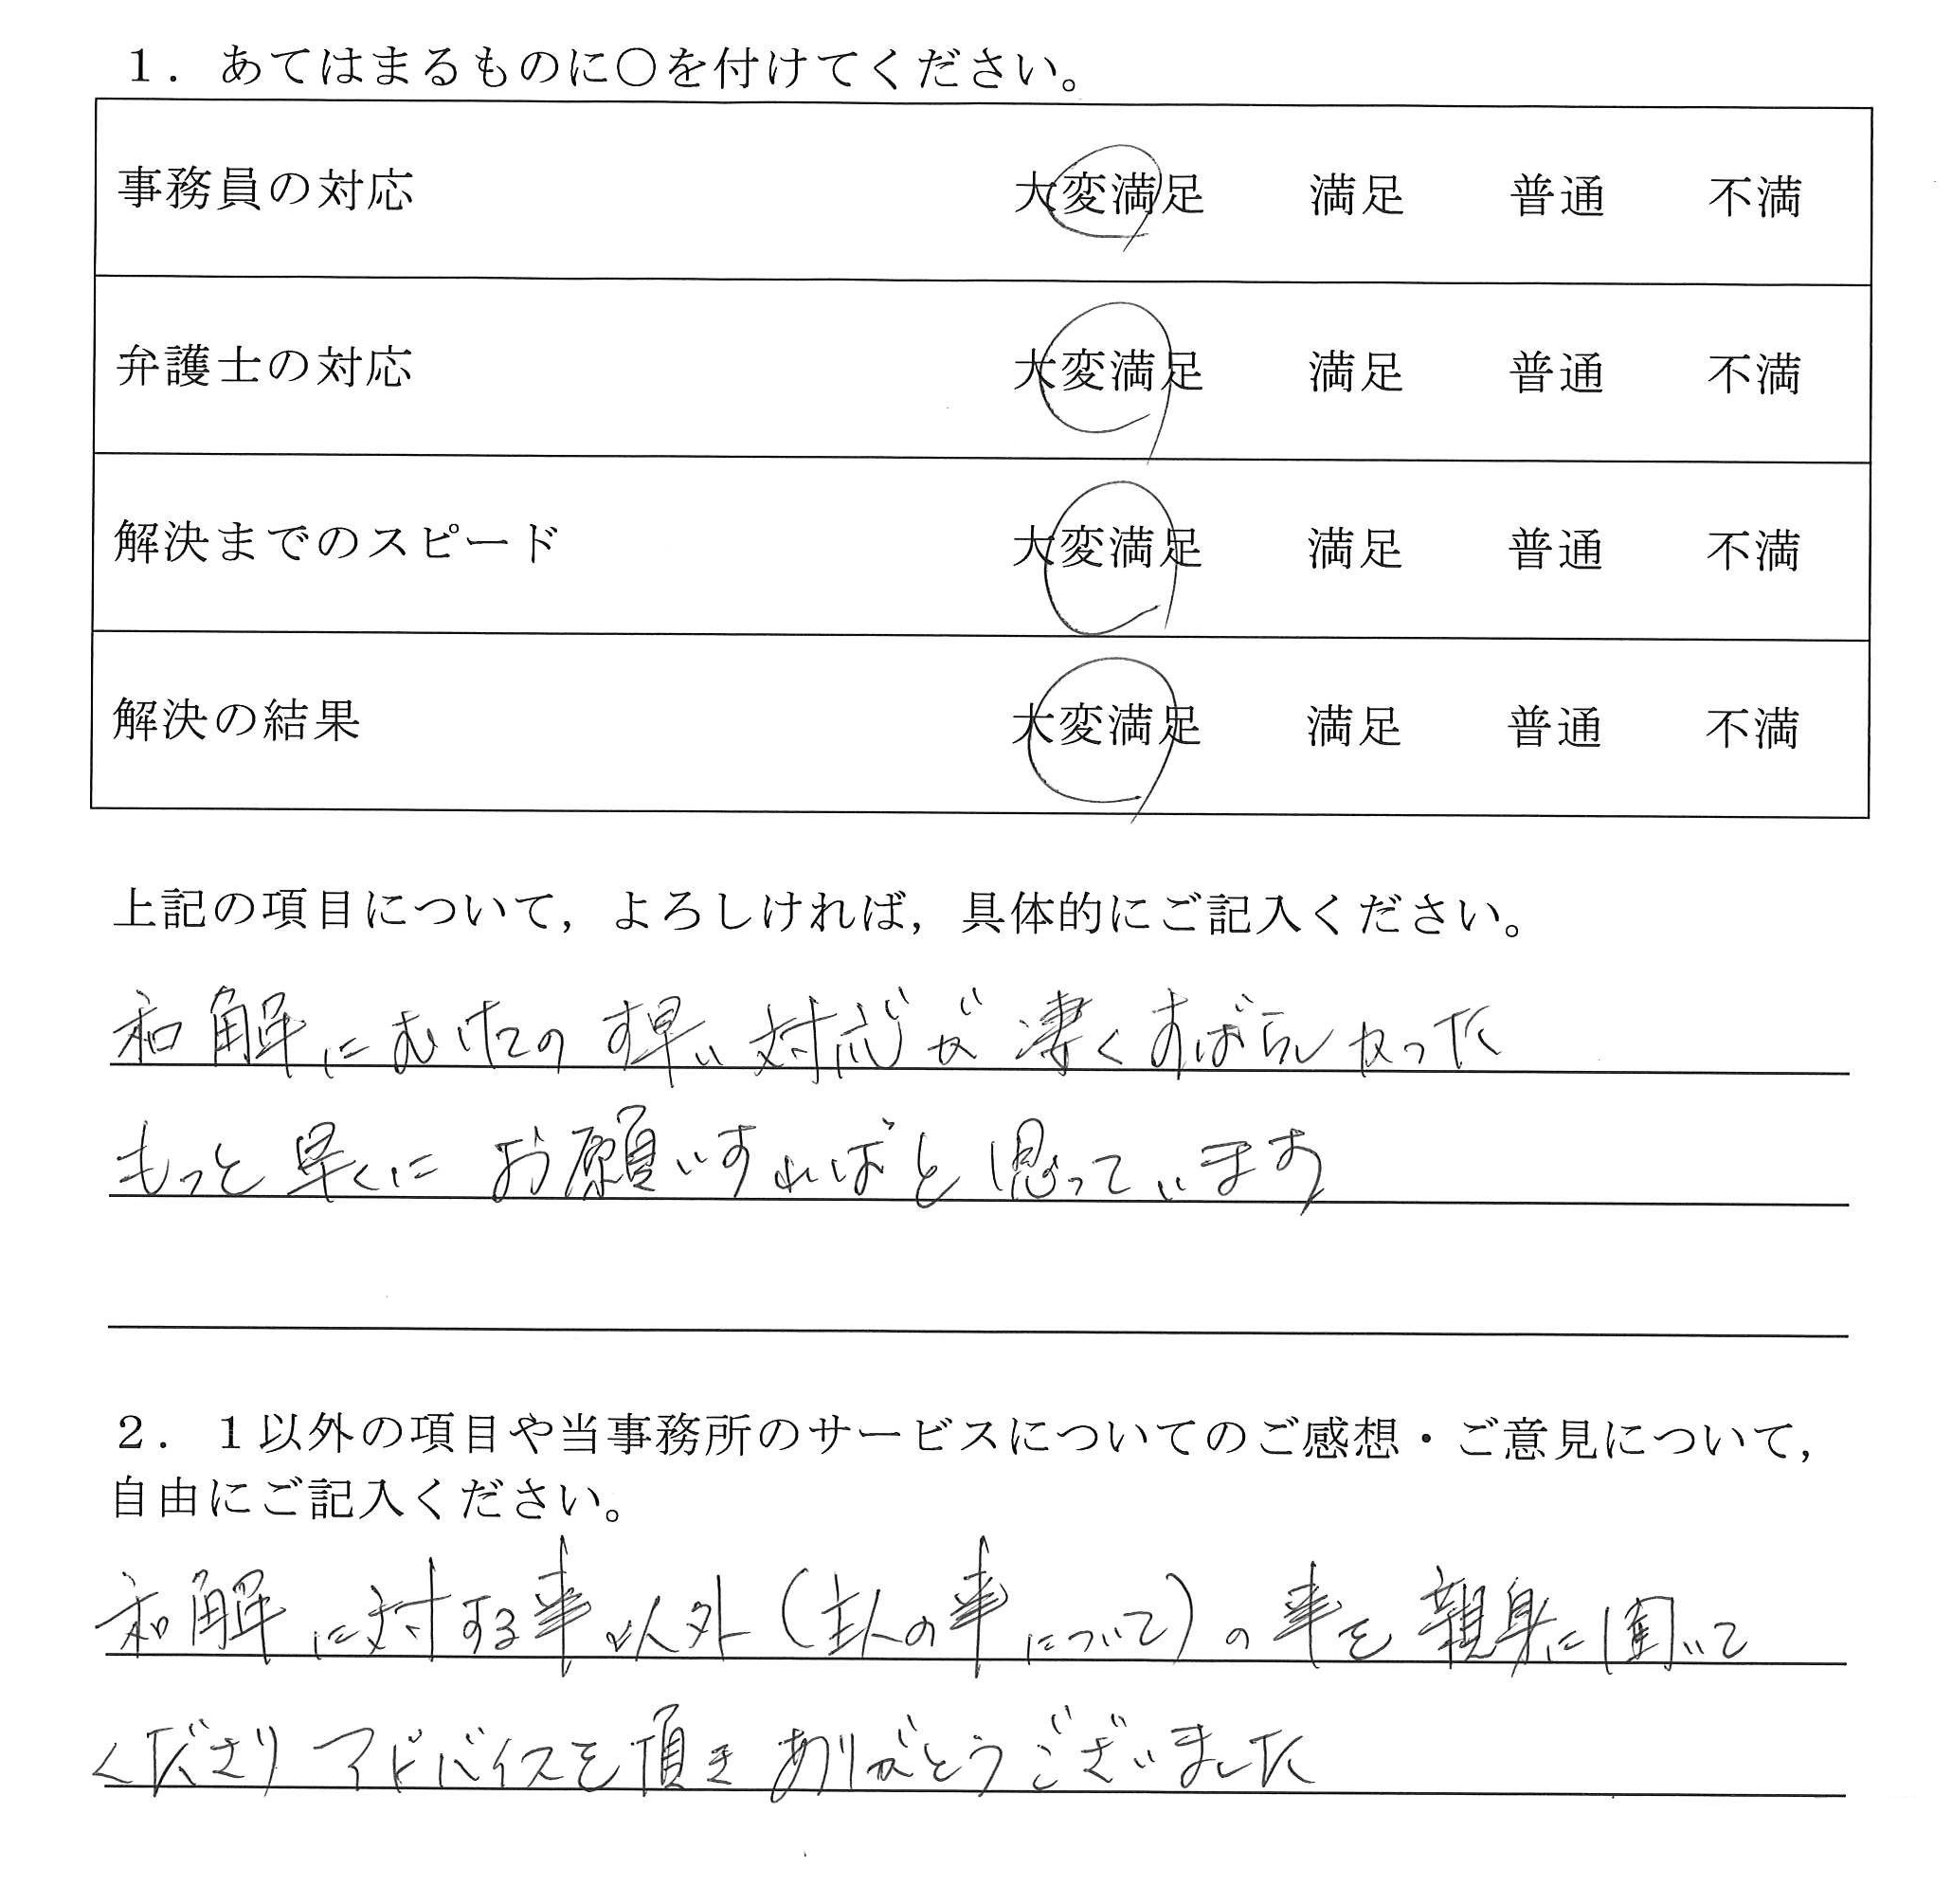 1．あてはまるものに○を付けてください。
事務員の対応 大変満足 満足 普通 不満
弁護士の対応 大変満足 満足 普通 不満
解決までのスピード 大変満足 満足 普通 不満
解決の結果 大変満足 満足 普通 不満
上記の項目について，よろしければ，具体的にご記入ください。
和解にむけたの す早い 対応が 凄く すばらしかった
もっと 早くに お願いすればと 思っています
2．1以外の項目や当事務所のサービスについてのご感想・ご意見について，
自由にご記入ください。
和解に対する事以外（主人の事について）の事を 親身に聞いて
くださり アドバイスを頂き ありがとうございました